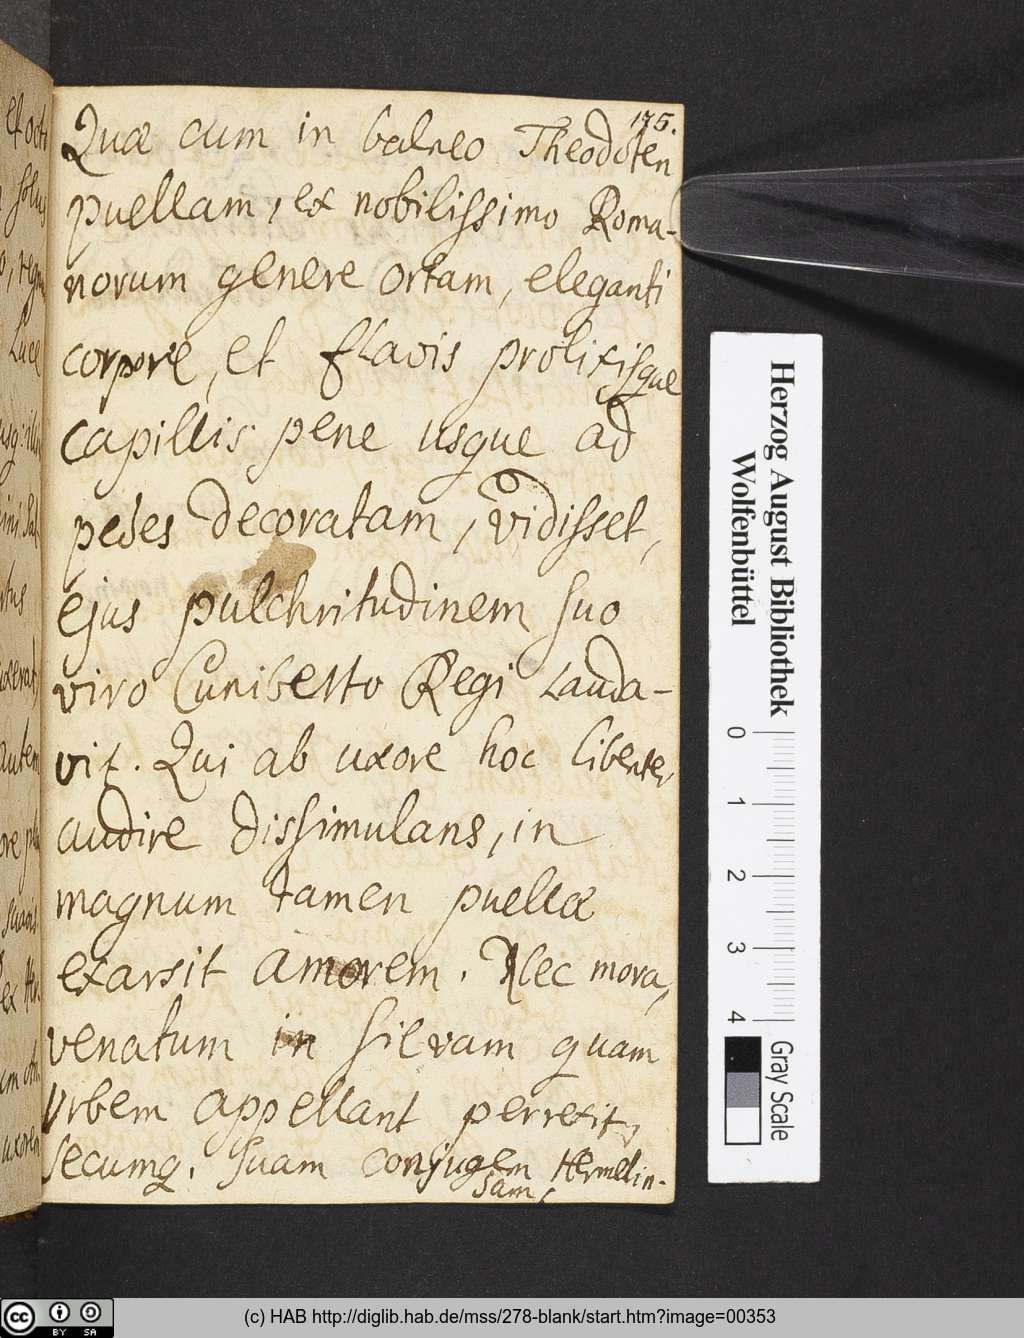 175.
Quæ cum in balneo Theodoten
puellam, ex nobilissimo Roma-
norum genere ortam, eleganti
corpore, et flavis prolixisque
capillis pene usque ad
pedes decoratam, vidisset,
ejus pulchritudinem suo
viro Cuniberto Regi lauda-
vit. Qui ab uxore hoc libenter
audire dissimulans, in
magnum tamen puellæ
exarsit amorem. Nec mora,
venatum in silvam quam
Urbem appellant perrexit,
secumq. suam conjugem Hermelin-
sam,
et octo
solus
Luce
autem
uxorem
Herzog August Bibliothek
Wolfenbüttel
0 1 2 3 4
Gray Scale
cc BY SA
(c) HAB http://diglib.hab.de/mss/278-blank/start.htm?image=00353